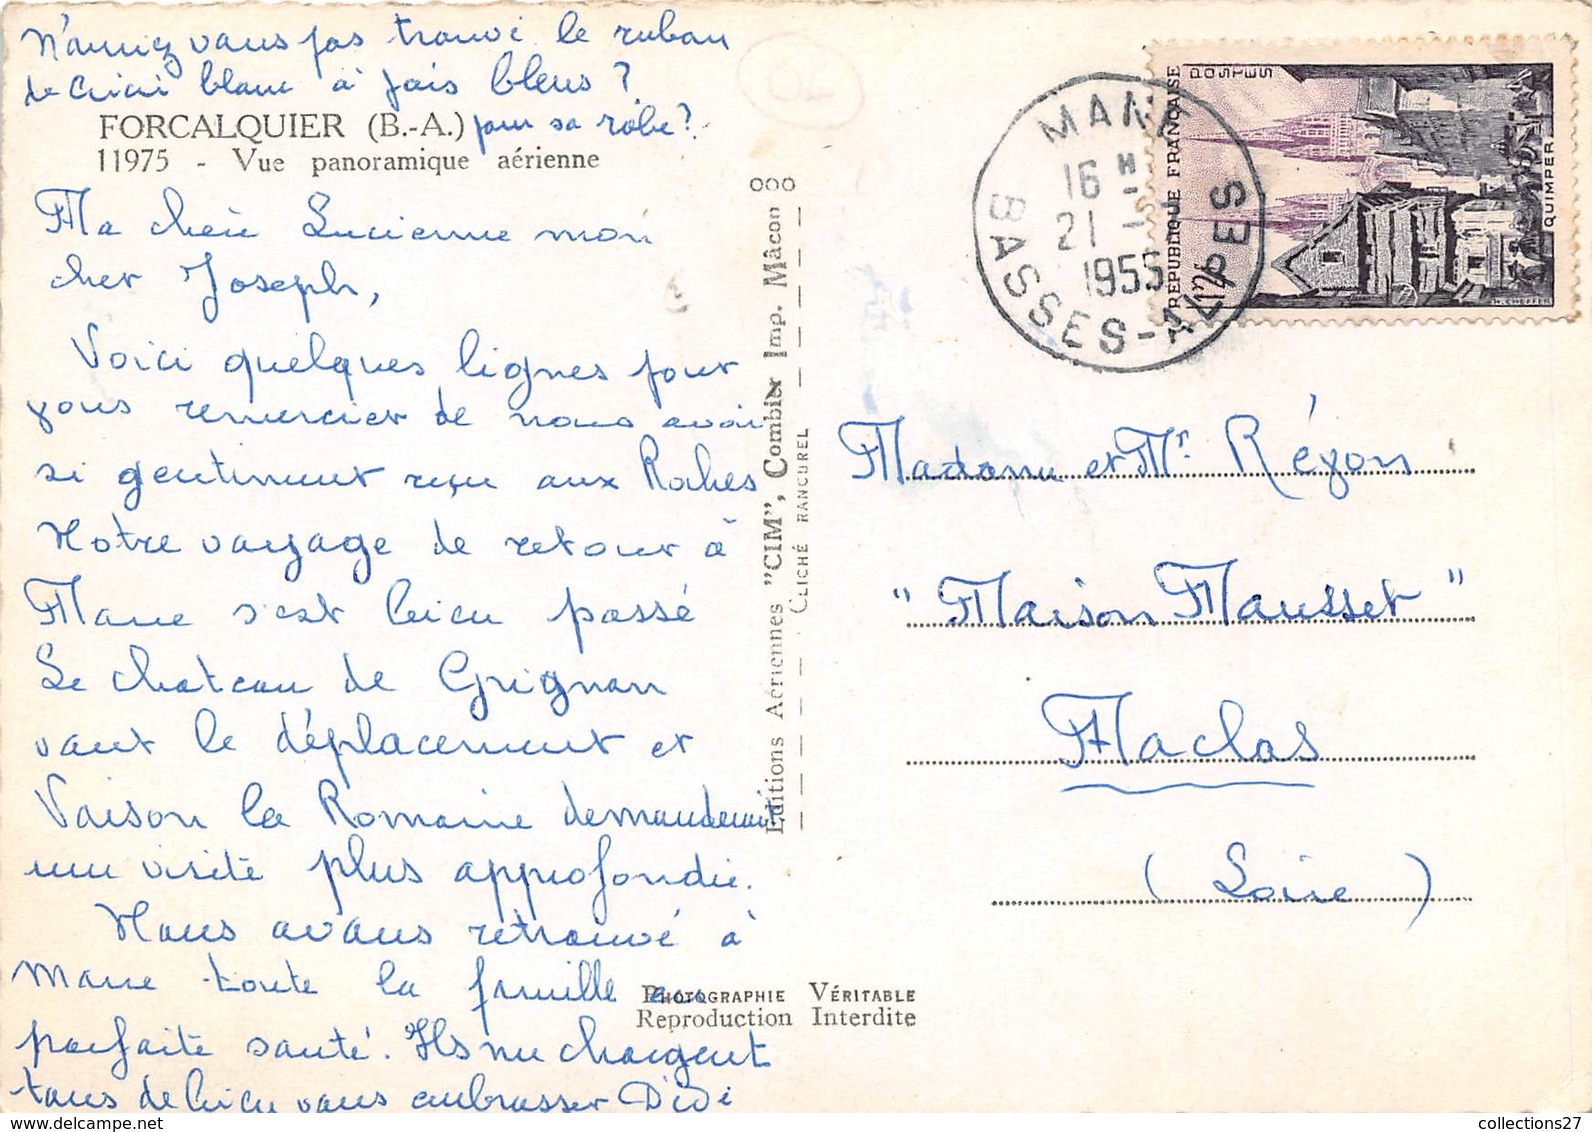 N'auriez vous pas trouvé le ruban
de Cricri blanc à pois bleus ?
pour sa robe ?
FORCALQUIER (B.-A.)
11975 - Vue panoramique aérienne
Ma chère Lucienne mon
cher Joseph,
Voici quelques lignes pour
vous remercier de nous avoir
si gentiment reçu aux Roches
Notre voyage de retour à
Mane s'est bien passé
Le chateau de Grignan
vaut le déplacement et
Vaison la Romaine demanderait
une visite plus approfondie.
Nous avons retrouvé à
Mane toute la famille en
parfaite santé. Ils me chargent
tous de bien vous embrasser Didi
Editions Aériennes "CIM", Combier Imp. Mâcon
CLICHÉ RANCUREL
PHOTOGRAPHIE VÉRITABLE
Reproduction Interdite
MANE
16 H
21 -
1955
BASSES-ALPES
REPUBLIQUE FRANÇAISE
POSTES
QUIMPER
Madame et Mr
"Maison Mausset"
Maclas
(Loire)
collections27